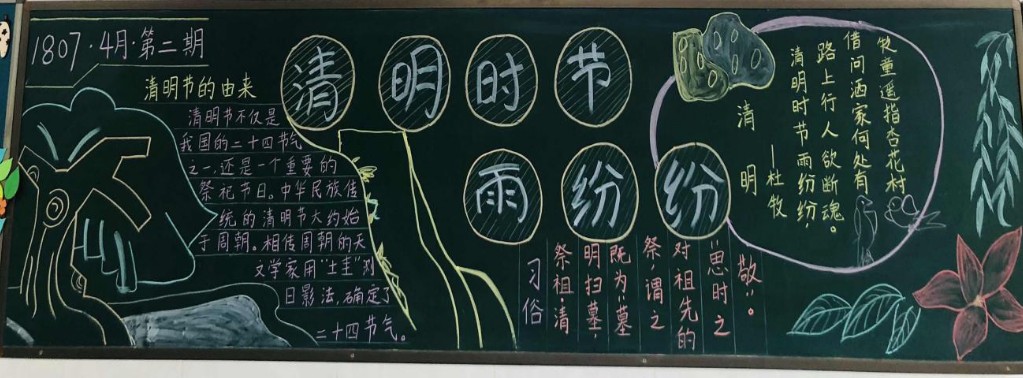 1807·4月·第二期
清明节的由来
清明节不仅是
我国的二十四节气
之一,还是一个重要的
祭祀节日。中华民族传
统的清明节大约始
于周朝。相传周朝的天
文学家用“土圭”测
日影法,确定了
二十四节气。
清明时节
雨纷纷
习俗
祭祖:清
明扫墓,
既为“墓
祭,谓之
对祖先的
“思时之
敬”。
清明
—杜牧
清明时节雨纷纷,
路上行人欲断魂。
借问酒家何处有
牧童遥指杏花村